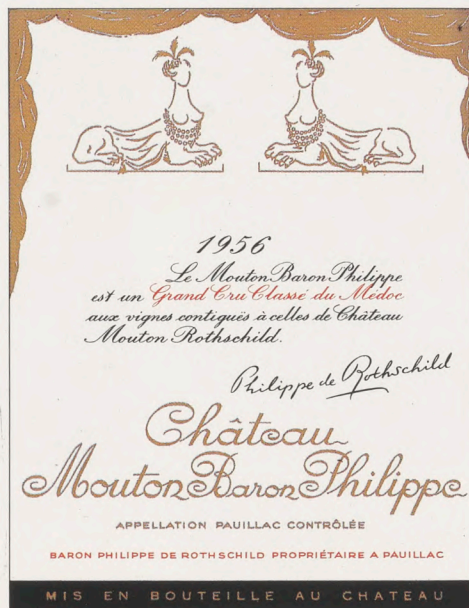 1956
Le Mouton Baron Philippe
est un Grand Cru Classé du Médoc
aux vignes contiguës à celles de Château
Mouton Rothschild.
Philippe de Rothschild
Château
Mouton Baron Philippe
APPELLATION PAUILLAC CONTRÔLÉE
BARON PHILIPPE DE ROTHSCHILD PROPRIÉTAIRE A PAUILLAC
MIS EN BOUTEILLE AU CHATEAU